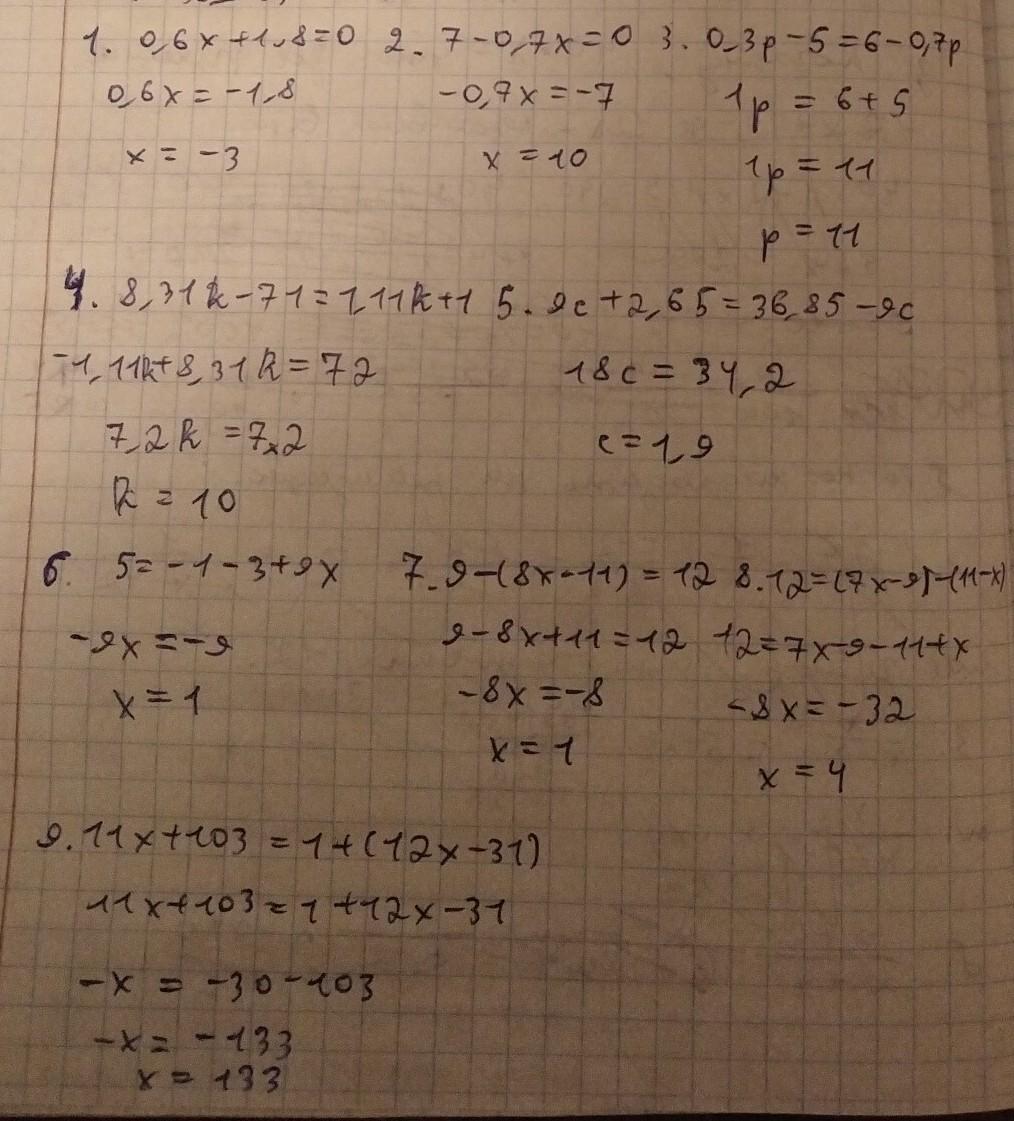 1. 0,6x+1,8=0 2. 7-0,7x=0 3. 0,3p-5=6-0,7p
0,6x=-1,8 -0,7x=-7 1p=6+5
x=-3 x=10 1p=11
p=11
4. 8,31k-71=1,11k+1 5. 9c+2,65=36,85-9c
-1,11k+8,31k=72 18c=34,2
7,2k=7,2 c=1,9
k=10
6. 5=-1-3+9x 7. 9-(8x-11)=12 8. 12=(7x-9)-(11-x)
-9x=-9 9-8x+11=12 12=7x-9-11+x
x=1 -8x=-8 -8x=-32
x=1 x=4
9. 11x+103=1+(12x-31)
11x+103=1+12x-31
-x=-30-103
-x=-133
x=133